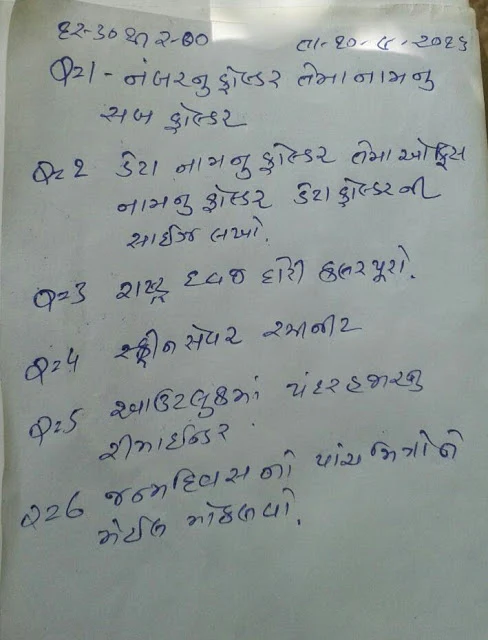 ૧૨-૩૦ થી ૨-૦૦ તા-૧૦-૬-૨૦૧૬
Q=1 - નંબરનુ ફોલ્ડર તેમા નામનુ
સબ ફોલ્ડર
Q=2 ડેટા નામનુ ફોલ્ડર તેમા ઓફિસ
નામનુ ફોલ્ડર ડેટા ફોલ્ડરની
સાઈઝ લખો.
Q=3 રાષ્ટ્ર ધ્વજ દોરી કલર પૂરો.
Q=4 સ્ક્રીન સેવર ૨૫ મીનીટ
Q=5 આઉટલુકમાં પંદર હજારનુ
રીમાઈન્ડર
Q=6 જન્મદિવસનો પાંચ મિત્રોને
મેઈલ મોકલવો.